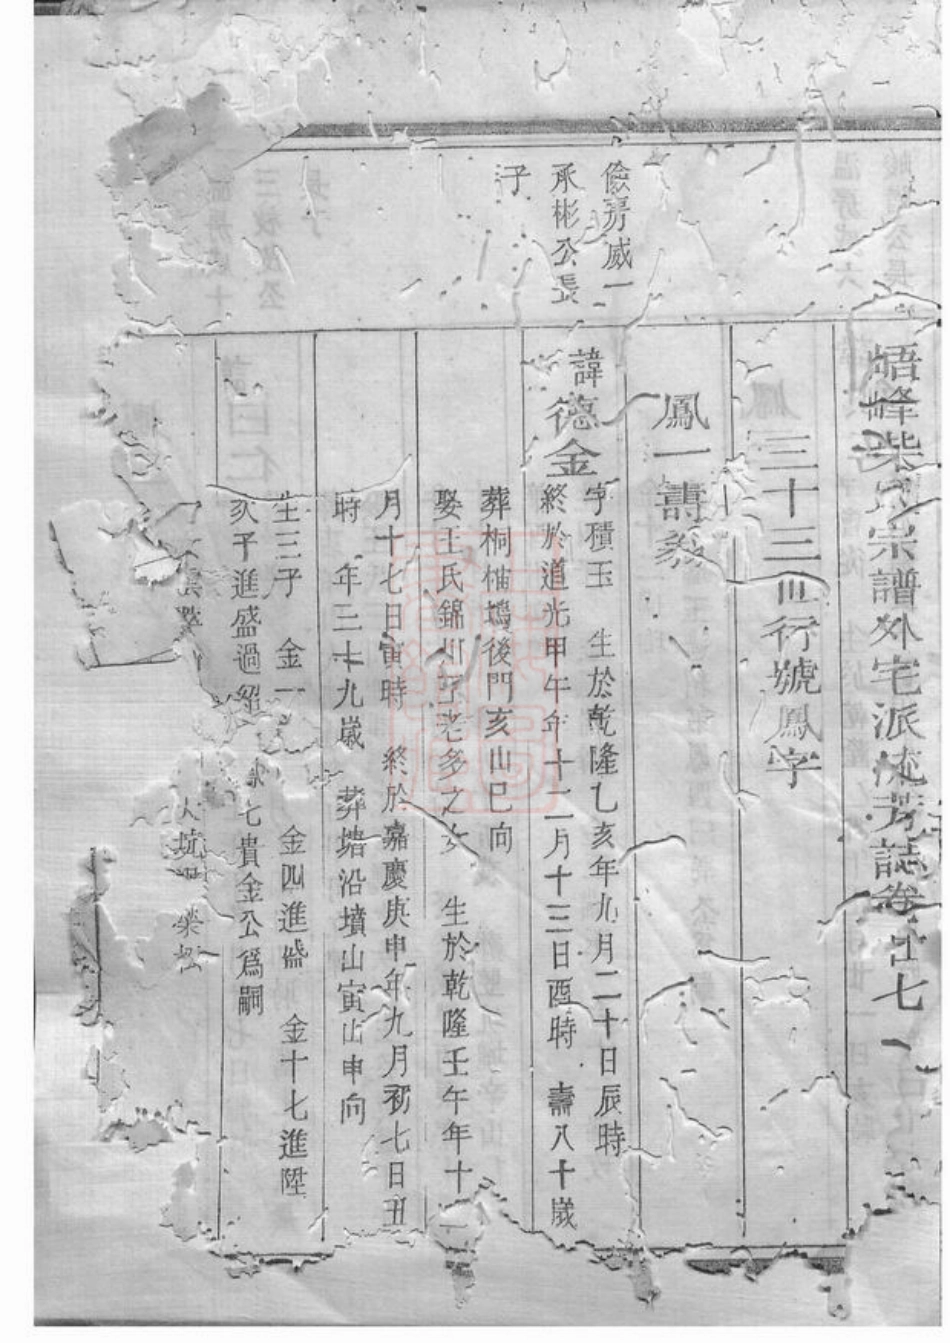 峿峰柴氏宗譜外宅派流芳誌卷廿七
三十三世行號鳳字
鳳一壽
儉房威一
承彬公長
子
諱德金
字積玉 生於乾隆乙亥年九月二十日辰時
終於道光甲午年十二月十三日酉時 壽八十歲
葬桐樁塢後門亥山巳向
娶王氏錦川 老多之女 生於乾隆壬午年十
月十七日寅時 終於嘉慶庚申年九月初七日丑
時 年三十九歲 葬塘沿墳山寅山申向
生三子 金一 金四進盛 金十七進陞
次子進盛過紹 七貴金公為嗣
大坑 柴松